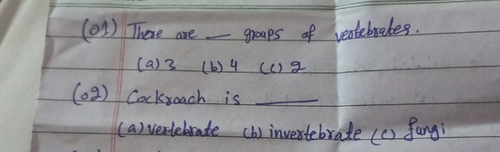 (01) There are — groups of vertebrates.
(a) 3 (b) 4 (c) 2
(02) Cockroach is ____
(a) vertebrate (b) invertebrate (c) fungi